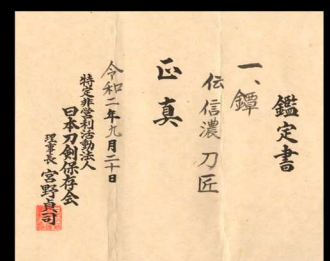 鑑定書
一、鐔
伝信濃刀匠
正真
令和二年九月二十日
特定非営利活動法人
日本刀剣保存会
理事長 宮野貞司